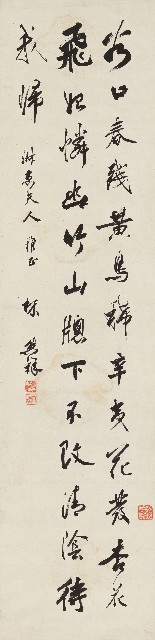 谷口春殘黃鳥稀辛夷花發杏花
飛始憐幽竹山牕下不改清陰待
我歸
淑惠夫人 雅正 林熊祥